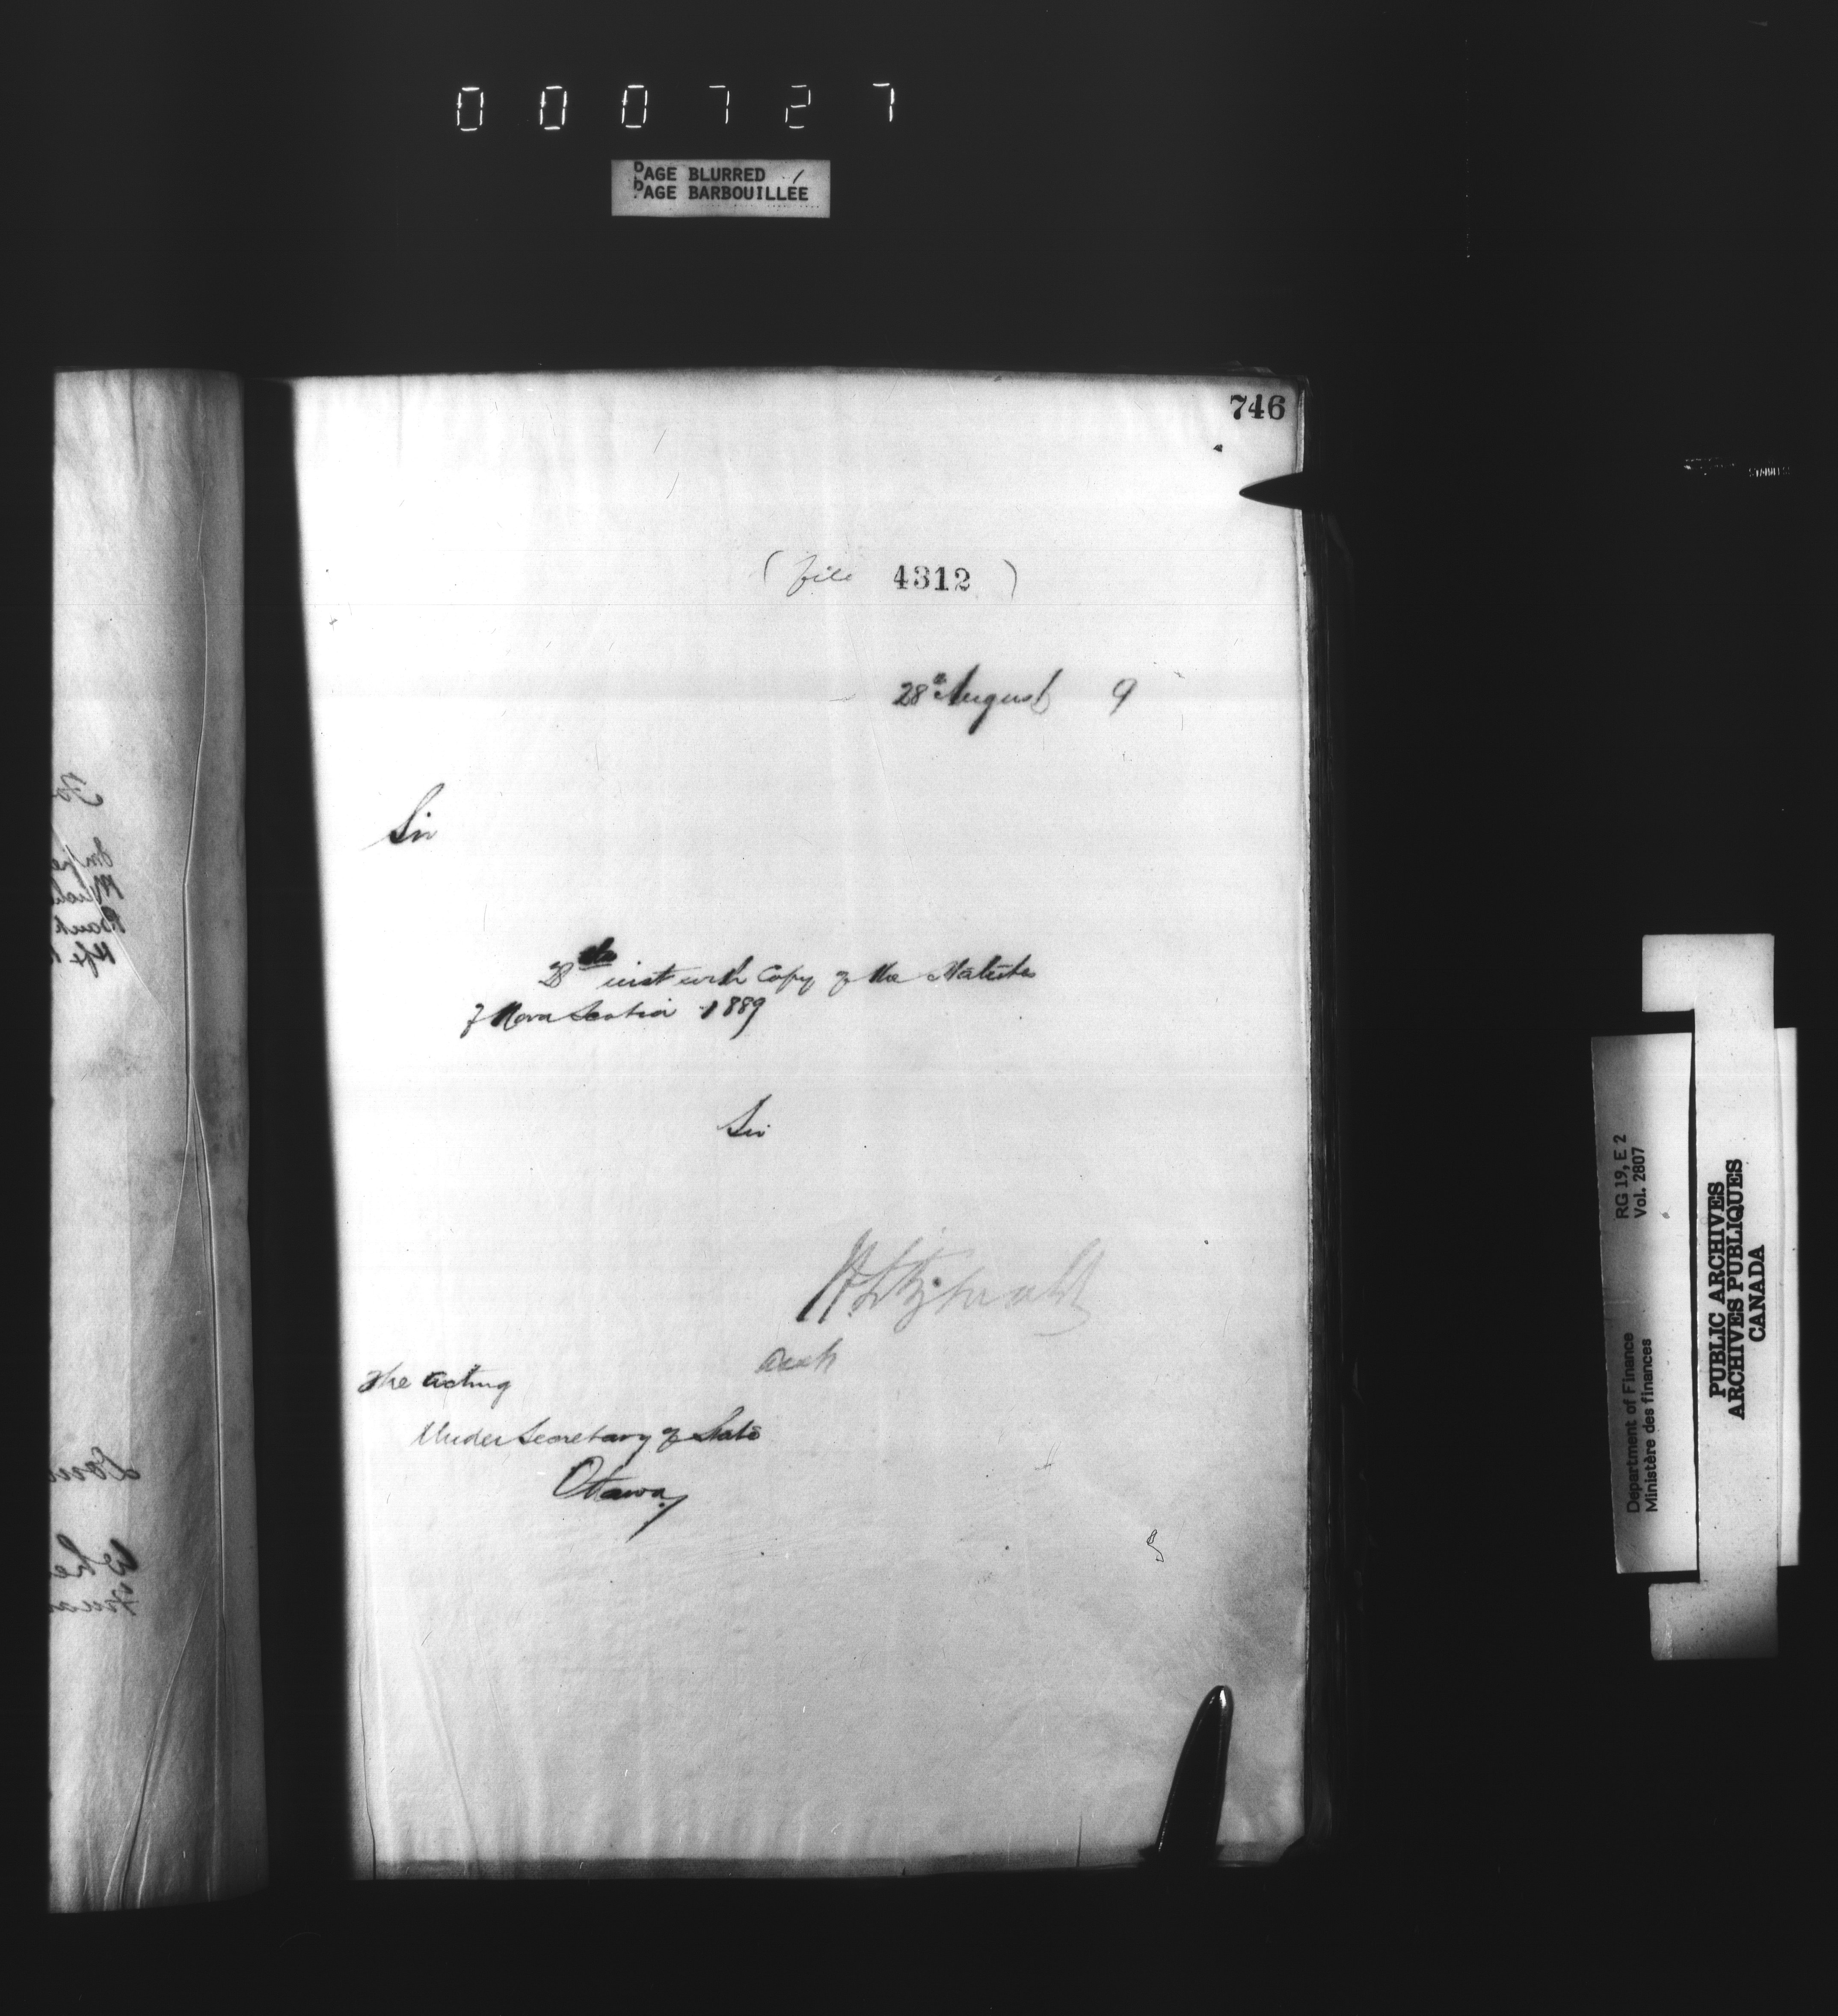 000727
PAGE BLURRED
PAGE BARBOUILLÉE
746
(file 4312)
28th August 9
Sir
inst with Copy of the Statutes
of Nova Scotia 1889
Sir
The acting
Under Secretary of State
Ottawa
RG 19, E 2
Vol. 2807
Department of Finance
Ministère des finances
PUBLIC ARCHIVES
ARCHIVES PUBLIQUES
CANADA